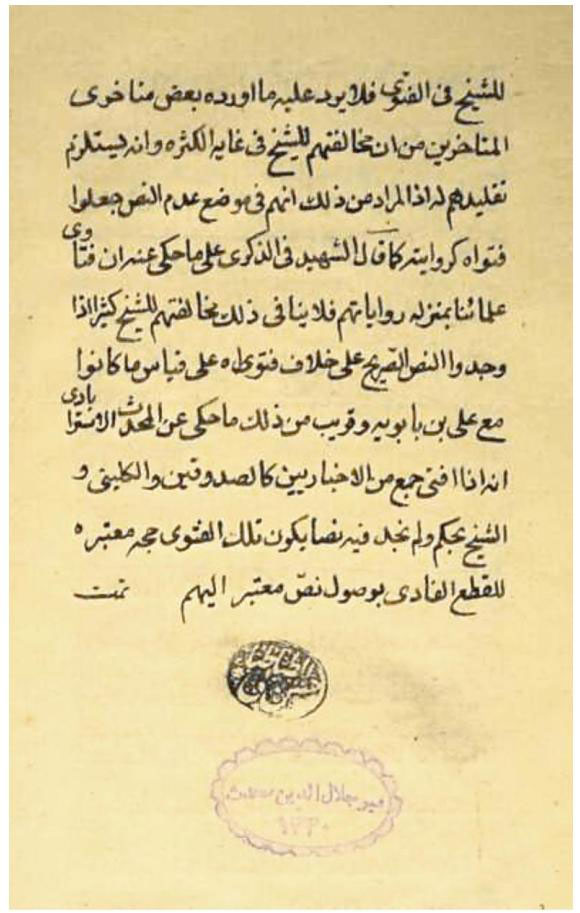 للشيخ فى الفتوى فلا يرد عليه ما اورده بعض متاخرى
المتاخرين من ان مخالفتهم للشيخ فى غايه الكثره وانه يستلزم
تقليدهم له اذ المراد من ذلك انهم فى موضع عدم النص جعلوا
فتواه كروايته كما قال الشهيد فى الذكرى على ما حكى عنه ان فتاوى
علمائنا بمنزله رواياتهم فلا ينافى ذلك مخالفتهم للشيخ كثيرا اذا
وجدوا النص الصريح على خلاف فتواه على قياس ما كانوا
مع على بن بابويه وقريب من ذلك ما حكى عن المحدث الاسترابادى
انه اذا افتى جمع من الاخباريين كالصدوقين والكلينى و
الشيخ بحكم ولم نجد فيه نصا يكون تلك الفتوى حجه معتبره
للقطع العادى بوصول نصّ معتبر اليهم تمت
مير جلال الدين محدث